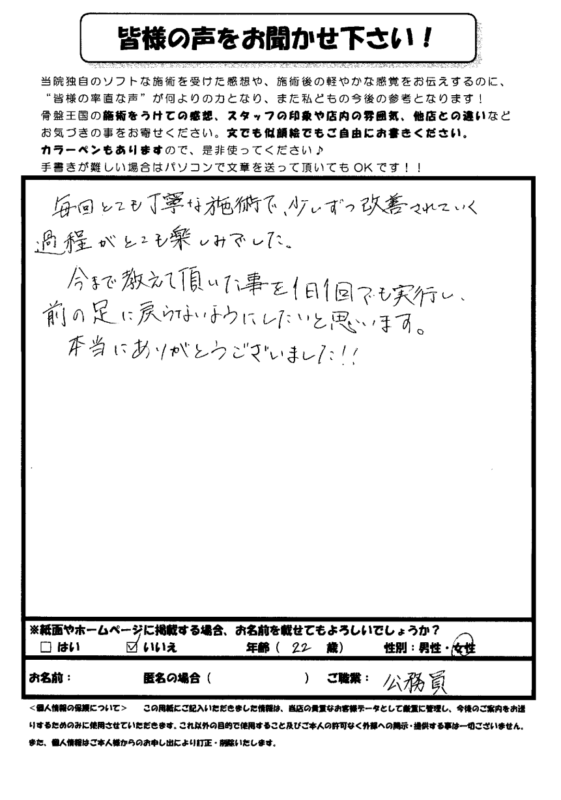 皆様の声をお聞かせ下さい！
当院独自のソフトな施術を受けた感想や、施術後の軽やかな感覚をお伝えするのに、
“皆様の率直な声”が何よりの力となり、また私どもの今後の参考となります！
骨盤王国の施術をうけての感想、スタッフの印象や店内の雰囲気、他店との違いなど
お気づきの事をお寄せください。文でも似顔絵でもご自由にお書きください。
カラーペンもありますので、是非使ってください♪
手書きが難しい場合はパソコンで文章を送って頂いてもOKです！！
毎回とても丁寧な施術で、少しずつ改善されていく
過程がとても楽しみでした。
今まで教えて頂いた事を1日1回でも実行し、
前の足に戻らないようにしたいと思います。
本当にありがとうございました!!
※紙面やホームページに掲載する場合、お名前を載せてもよろしいでしょうか？
□ はい ☑ いいえ 年齢（ 22 歳） 性別：男性・女性
お名前： 匿名の場合（ ） ご職業： 公務員
＜個人情報の保護について＞ この用紙にご記入いただきました情報は、当店の貴重なお客様データとして厳重に管理し、今後のご案内をお送
りするためのみに使用させていただきます。これ以外の目的で使用すること及びご本人の許可なく外部への開示・提供する事は一切ございません。
また、個人情報はご本人様からのお申し出により訂正・削除いたします。